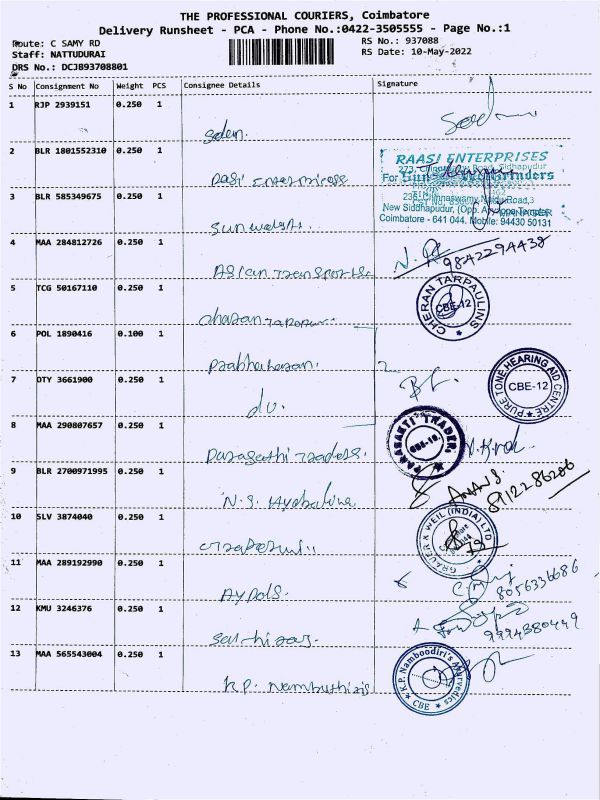 THE PROFESSIONAL COURIERS, Coimbatore
Delivery Runsheet - PCA - Phone No.:0422-3505555 - Page No.:1
Route: C SAMY RD
RS No.: 937088
Staff: NATTUDURAI
RS Date: 10-May-2022
DRS No.: DCJB93708801
S No Consignment No Weight PCS Consignee Details Signature
1 RJP 2939151 0.250 1
Selvn.
2 BLR 1801552310 0.250 1
RAASI ENTERPRISES
Rasi Enterprices
3 BLR 585349675 0.250 1
Sunwelgh.
New Siddhapudur, (Opp.
Coimbatore - 641 044. Mobile: 94430 50131
4 MAA 284812726 0.250 1
9842294438
Asian Transports.
5 TCG 50167110 0.250 1
CHERAN TARPAULINS
CBE-12
6 POL 1890416 0.100 1
Prabhakaran.
7 DTY 3661900 0.250 1
PURE TONE HEARING AID CENTRE
CBE-12
do.
8 MAA 290807657 0.250 1
PARASAKTI TRADERS
Parasathi Traders.
9 BLR 2700971995 0.250 1
8112286206
N.S.
10 SLV 3874040 0.250 1
GRAUER & WEIL (INDIA) LTD
11 MAA 289192990 0.250 1
8056336686
12 KMU 3246376 0.250 1
9994380449
13 MAA 565543004 0.250 1
K.P. Namboodiri's Ayurvedics
CBE
K.P. Nambuthiris